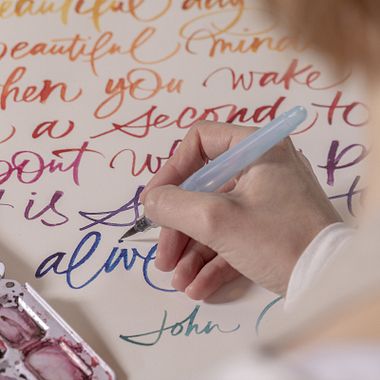 beautiful day
beautiful mind
when you wake
a second to
about
it is
alive
John